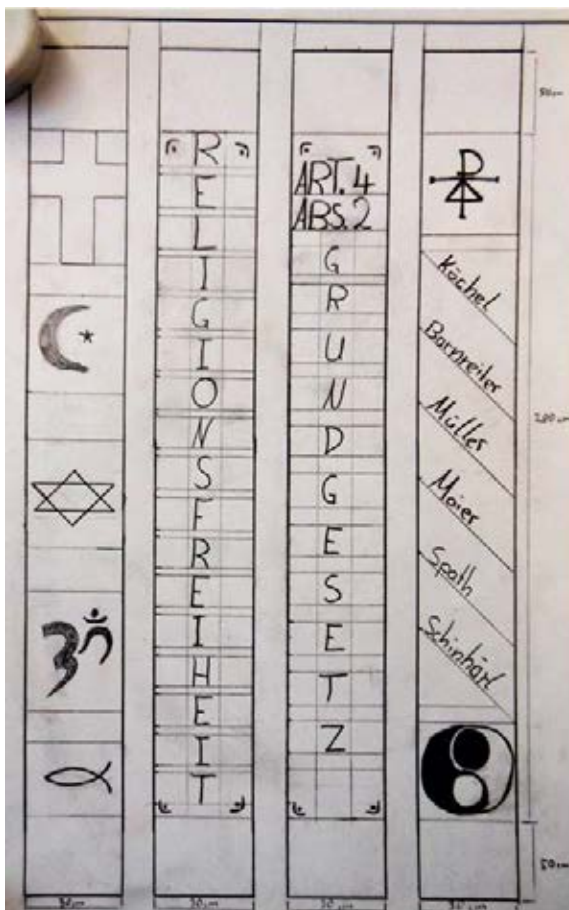 RELIGIONSFREIHEIT
ART.4
ABS.2
GRUNDGESETZ
Köchel
Barnreiter
Müller
Maier
Späth
50cm
200cm
50cm
30cm
30cm
30cm
30cm